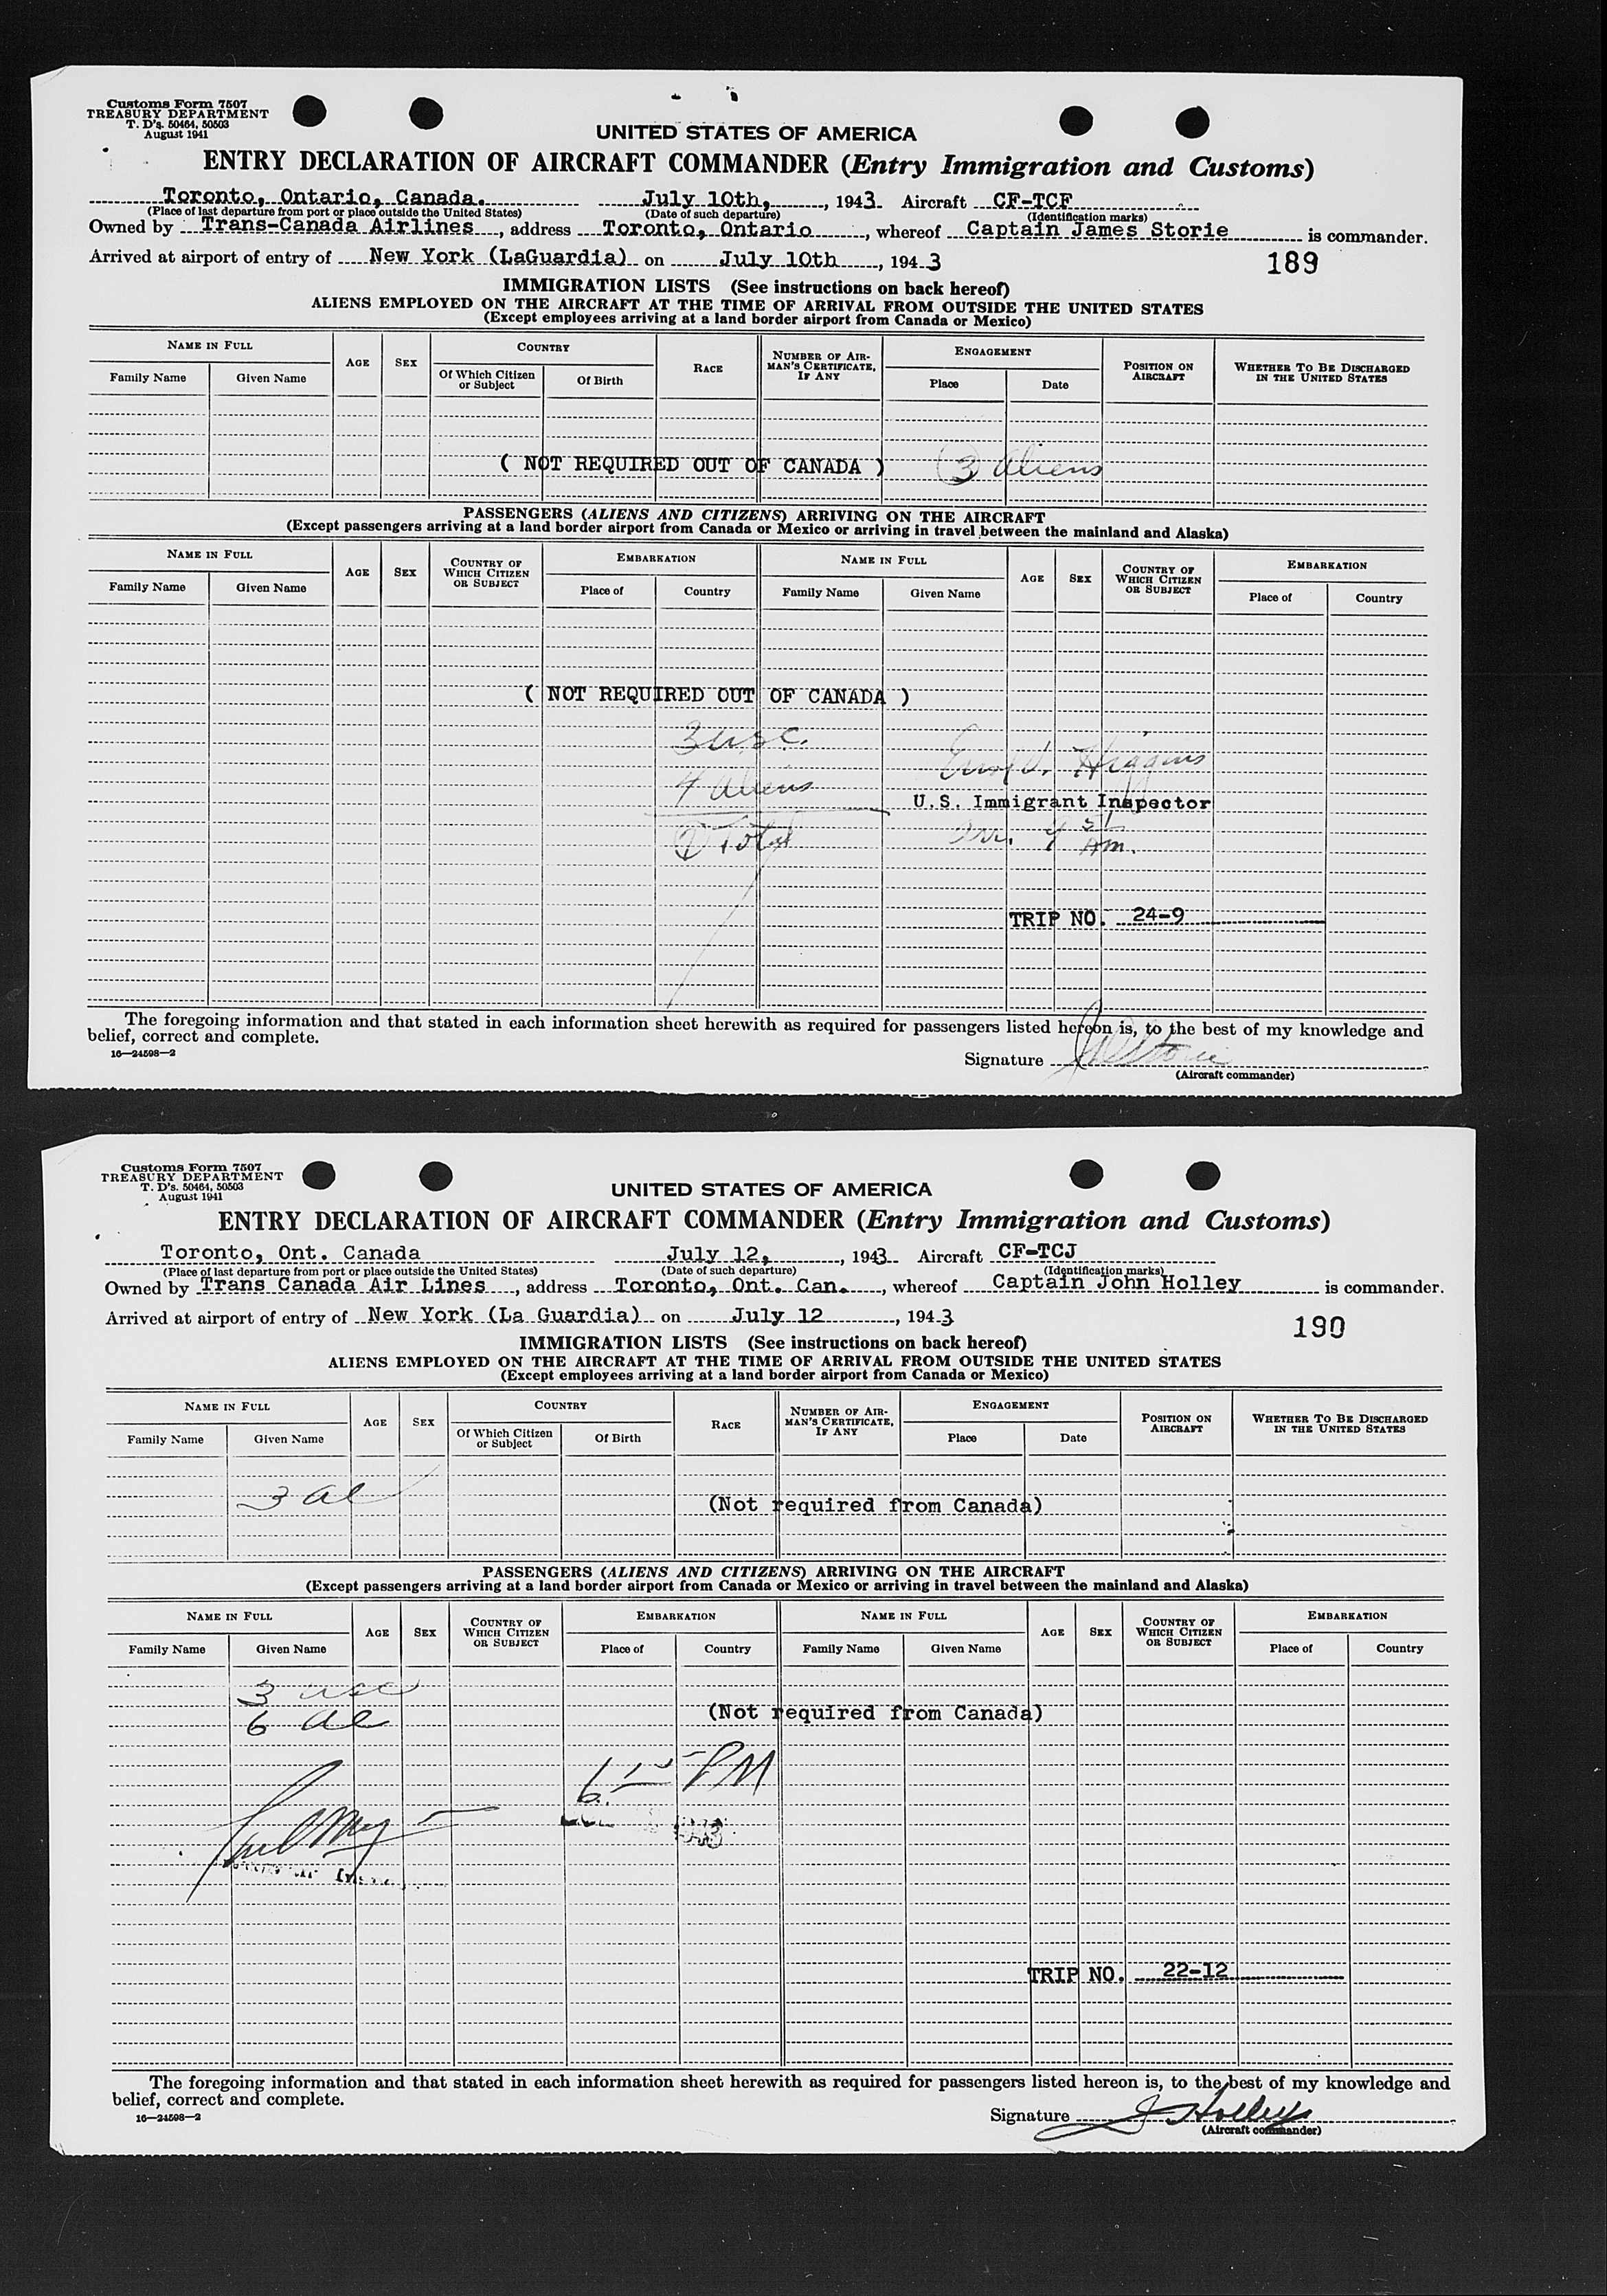 Customs Form 7507
TREASURY DEPARTMENT
T. D's. 50464, 50503
August 1941
UNITED STATES OF AMERICA
ENTRY DECLARATION OF AIRCRAFT COMMANDER (Entry Immigration and Customs)
Toronto, Ontario, Canada. July 10th, 1943 Aircraft CF-TCF
(Place of last departure from port or place outside the United States) (Date of such departure) (Identification marks)
Owned by Trans-Canada Airlines, address Toronto, Ontario, whereof Captain James Storie is commander.
Arrived at airport of entry of New York (LaGuardia) on July 10th, 1943
189
IMMIGRATION LISTS (See instructions on back hereof)
ALIENS EMPLOYED ON THE AIRCRAFT AT THE TIME OF ARRIVAL FROM OUTSIDE THE UNITED STATES
(Except employees arriving at a land border airport from Canada or Mexico)
NAME IN FULL AGE SEX COUNTRY RACE NUMBER OF AIRMAN'S CERTIFICATE, IF ANY ENGAGEMENT POSITION ON AIRCRAFT WHETHER TO BE DISCHARGED IN THE UNITED STATES
Family Name Given Name Of Which Citizen or Subject Of Birth Place Date
( NOT REQUIRED OUT OF CANADA ) 3 Aliens
PASSENGERS (ALIENS AND CITIZENS) ARRIVING ON THE AIRCRAFT
(Except passengers arriving at a land border airport from Canada or Mexico or arriving in travel between the mainland and Alaska)
NAME IN FULL AGE SEX COUNTRY OF WHICH CITIZEN OR SUBJECT EMBARKATION NAME IN FULL AGE SEX COUNTRY OF WHICH CITIZEN OR SUBJECT EMBARKATION
Family Name Given Name Place of Country Family Name Given Name Place of Country
( NOT REQUIRED OUT OF CANADA )
3 usc.
Higgins
4 Aliens
U.S. Immigrant Inspector
7 Total
arr. 4 51 Am.
TRIP NO. 24-9
The foregoing information and that stated in each information sheet herewith as required for passengers listed hereon is, to the best of my knowledge and
belief, correct and complete.
16—24598—2
Signature Storie
(Aircraft commander)
Customs Form 7507
TREASURY DEPARTMENT
T. D's. 50464, 50503
August 1941
UNITED STATES OF AMERICA
ENTRY DECLARATION OF AIRCRAFT COMMANDER (Entry Immigration and Customs)
Toronto, Ont. Canada July 12, 1943 Aircraft CF-TCJ
(Place of last departure from port or place outside the United States) (Date of such departure) (Identification marks)
Owned by Trans Canada Air Lines, address Toronto, Ont. Can., whereof Captain John Holley is commander.
Arrived at airport of entry of New York (La Guardia) on July 12, 1943
190
IMMIGRATION LISTS (See instructions on back hereof)
ALIENS EMPLOYED ON THE AIRCRAFT AT THE TIME OF ARRIVAL FROM OUTSIDE THE UNITED STATES
(Except employees arriving at a land border airport from Canada or Mexico)
NAME IN FULL AGE SEX COUNTRY RACE NUMBER OF AIRMAN'S CERTIFICATE, IF ANY ENGAGEMENT POSITION ON AIRCRAFT WHETHER TO BE DISCHARGED IN THE UNITED STATES
Family Name Given Name Of Which Citizen or Subject Of Birth Place Date
3 al
(Not required from Canada)
PASSENGERS (ALIENS AND CITIZENS) ARRIVING ON THE AIRCRAFT
(Except passengers arriving at a land border airport from Canada or Mexico or arriving in travel between the mainland and Alaska)
NAME IN FULL AGE SEX COUNTRY OF WHICH CITIZEN OR SUBJECT EMBARKATION NAME IN FULL AGE SEX COUNTRY OF WHICH CITIZEN OR SUBJECT EMBARKATION
Family Name Given Name Place of Country Family Name Given Name Place of Country
3 usc
6 al (Not required from Canada)
6 15 PM
TRIP NO. 22-12
The foregoing information and that stated in each information sheet herewith as required for passengers listed hereon is, to the best of my knowledge and
belief, correct and complete.
16—24598—2
Signature J Holley
(Aircraft commander)